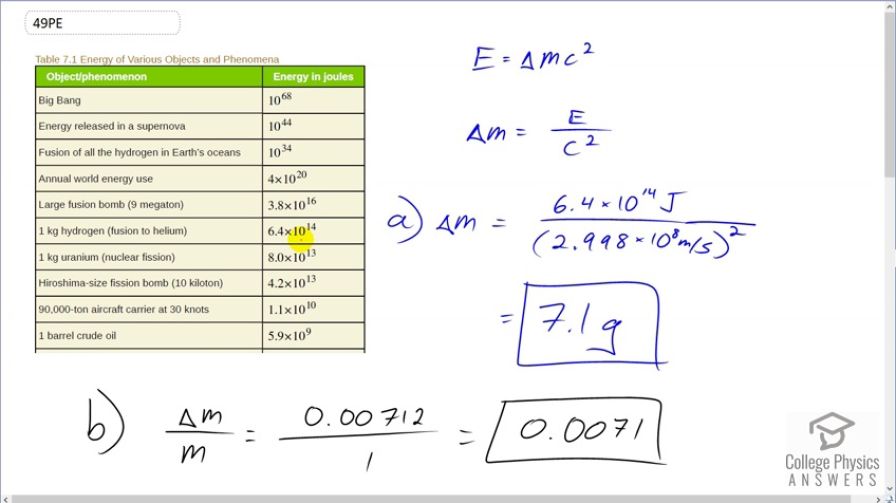 49PE
Table 7.1 Energy of Various Objects and Phenomena
Object/phenomenon Energy in joules
Big Bang 10^68
Energy released in a supernova 10^44
Fusion of all the hydrogen in Earth's oceans 10^34
Annual world energy use 4×10^20
Large fusion bomb (9 megaton) 3.8×10^16
1 kg hydrogen (fusion to helium) 6.4×10^14
1 kg uranium (nuclear fission) 8.0×10^13
Hiroshima-size fission bomb (10 kiloton) 4.2×10^13
90,000-ton aircraft carrier at 30 knots 1.1×10^10
1 barrel crude oil 5.9×10^9
E = Δmc²
Δm = E / c²
a) Δm = 6.4×10^14 J / (2.998×10^8 m/s)²
= 7.1 g
b) Δm / m = 0.00712 / 1 = 0.0071
College Physics
ANSWERS